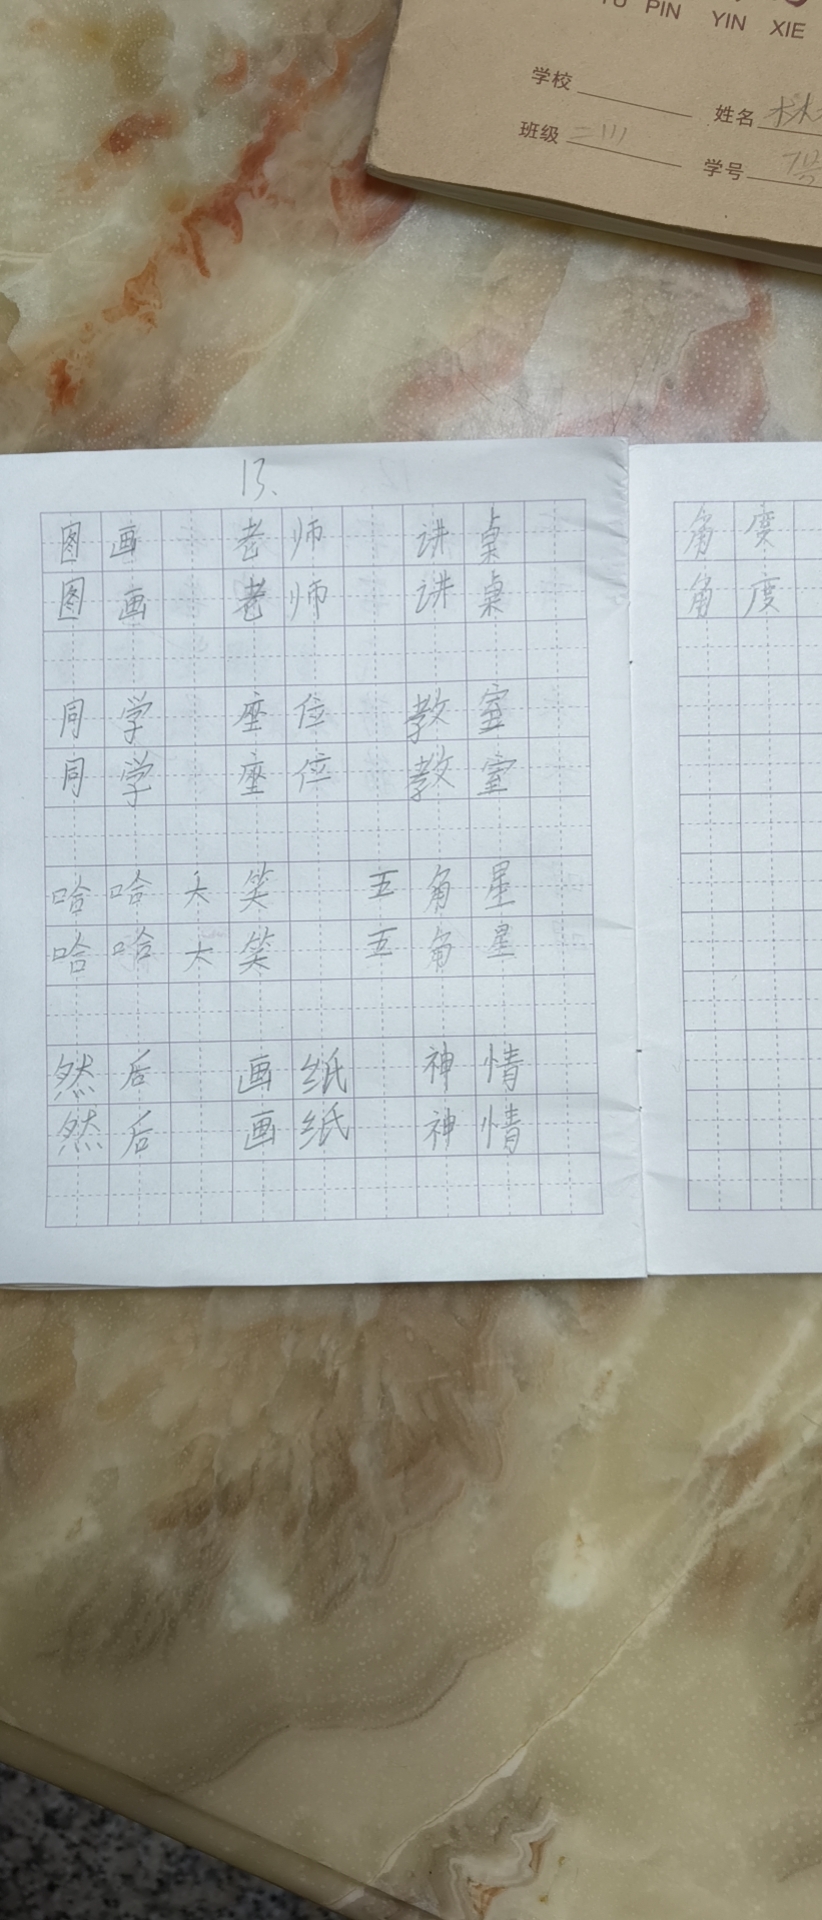 PIN YIN XIE
学校
姓名 林
班级 二
学号 7号
13、
图画 老师 讲桌
图画 老师 讲桌
同学 座位 教室
同学 座位 教室
哈哈大笑 五角星
哈哈大笑 五角星
然后 画纸 神情
然后 画纸 神情
角度
角度